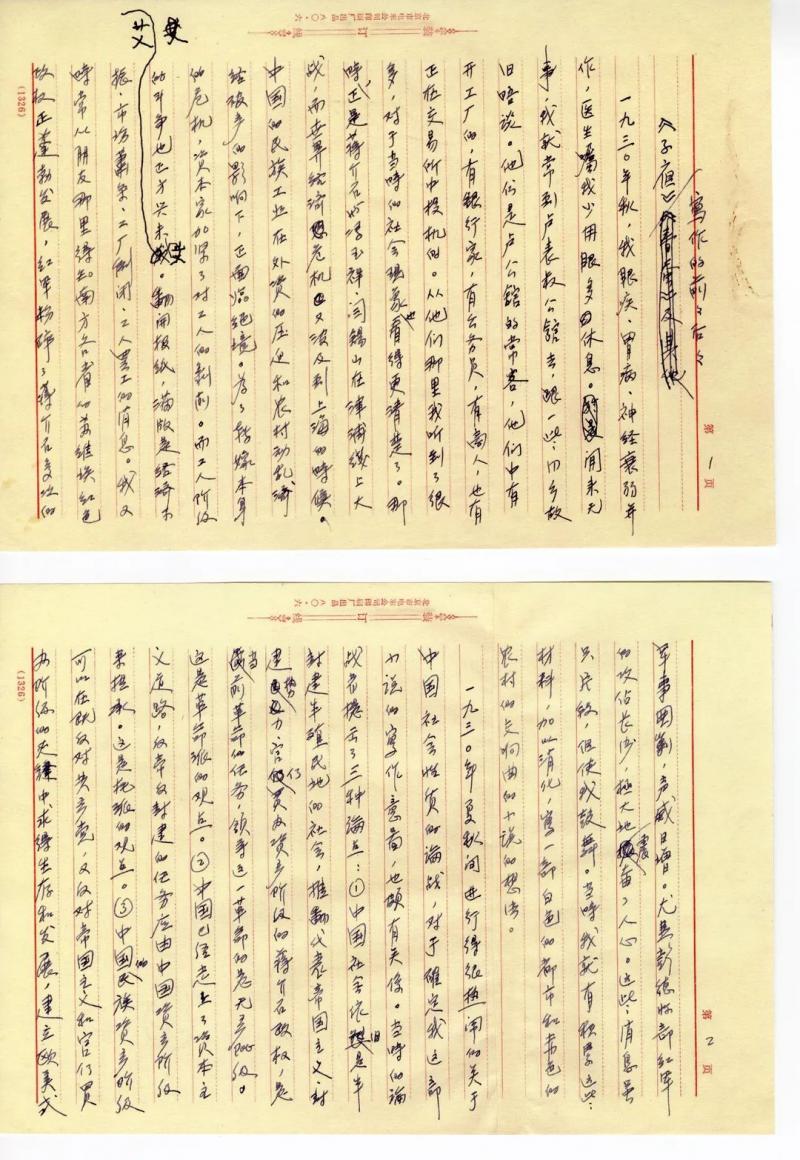 《子夜》写作的前前后后
第1页
一九三〇年秋，我眼疾、胃病、神经衰弱并
作，医生嘱我少用眼多休息。闲来无
事，我就常到卢表叔公馆去，跟一些同乡故
旧晤谈。他们是卢公馆的常客，他们中有
开工厂的，有银行家，有公务员，有商人，也有
正在交易所中投机的。从他们那里我听到了很
多，对于当时的社会现象也看得更清楚了。那
时正是蒋介石与冯玉祥、阎锡山在津浦线上大
战，而世界经济危机又波及到上海的时候。
中国的民族工业在外资的压迫和农村动乱、经济
破产的影响下，正面临绝境。为了转嫁本身
的危机，资本家加紧了对工人的剥削。而工人阶级
的斗争也正方兴未艾。翻开报纸，满版是经济不
振、市场萧条、工厂倒闭、工人罢工的消息。我又
时常从朋友那里得知南方各省的苏维埃红色
政权正蓬勃发展，红军粉碎了蒋介石多次的
艾
(1326)
北京市电车公司印刷厂出品 八〇·六
装订线
第2页
军事围剿，声威日增。尤其彭德怀部红军
的攻占长沙，极大地震奋了人心。这些消息虽
只片段，但使我鼓舞。当时我就有积累这些
材料，加以消化，写一部白色的都市和赤色的
农村的交响曲的小说的想法。
一九三〇年夏秋间进行得很热闹的关于
中国社会性质的论战，对于确定我这部
小说的写作意图，也颇有关系。当时的论
战者提出了三种论点：①中国社会依旧是半
封建半殖民地的社会，推翻代表帝国主义、封
建势力、官僚买办资产阶级的蒋介石政权，是
当前革命的任务，领导这一革命的是无产阶级。
这是革命派的观点。②中国已经走上了资本主
义道路，反帝反封建的任务应由中国资产阶级
来担承。这是托派的观点。③中国的民族资产阶级
可以在既反对共产党，又反对帝国主义和官僚买
办阶级的夹缝中求得生存和发展，建立欧美式
(1326)
北京市电车公司印刷厂出品 八〇·六
装订线